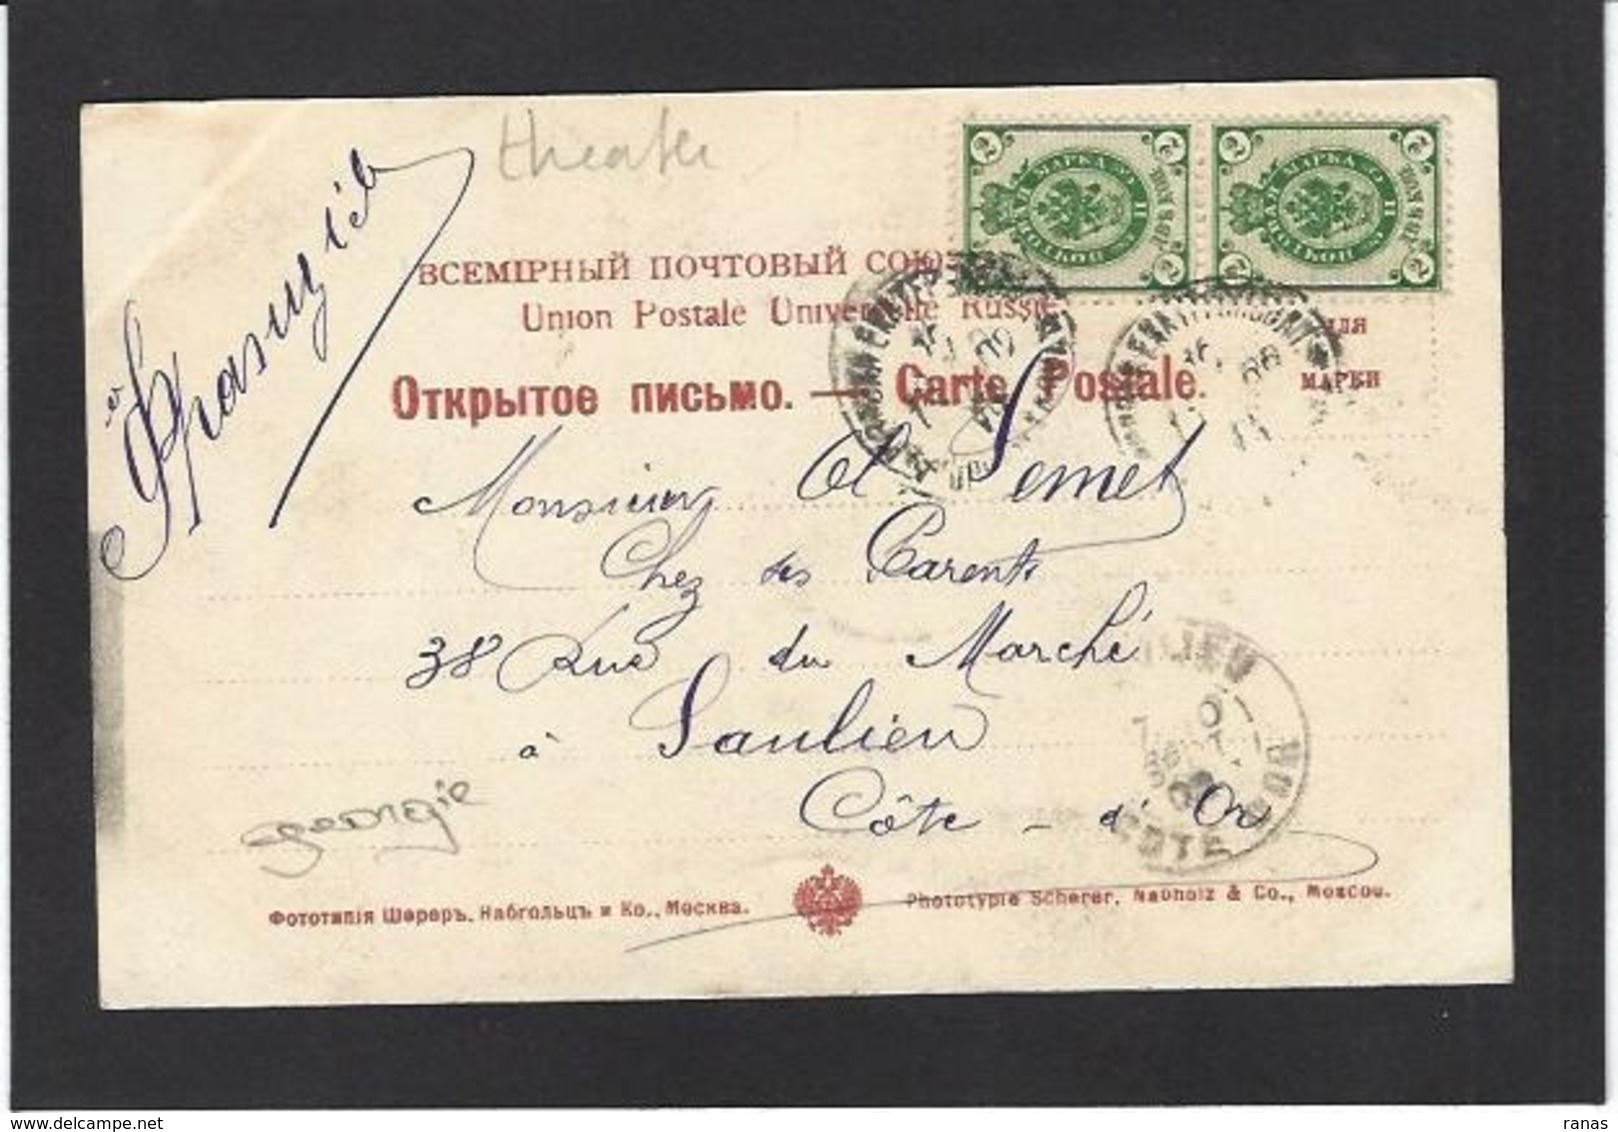 theater
Францiя
ВСЕМIРНЫЙ ПОЧТОВЫЙ СОЮЗ
Union Postale Universelle Russie
Открытое письмо. — Carte Postale.
ДЛЯ
МАРКИ
Monsieur Semet
Chez ses Parents
38 Rue du Marché
à Saulieu
Côte - d'Or
georgie
Фототипiя Шереръ, Набгольцъ и Ко., Москва.
Phototypie Scherer, Nabholz & Co., Moscou.
ranas